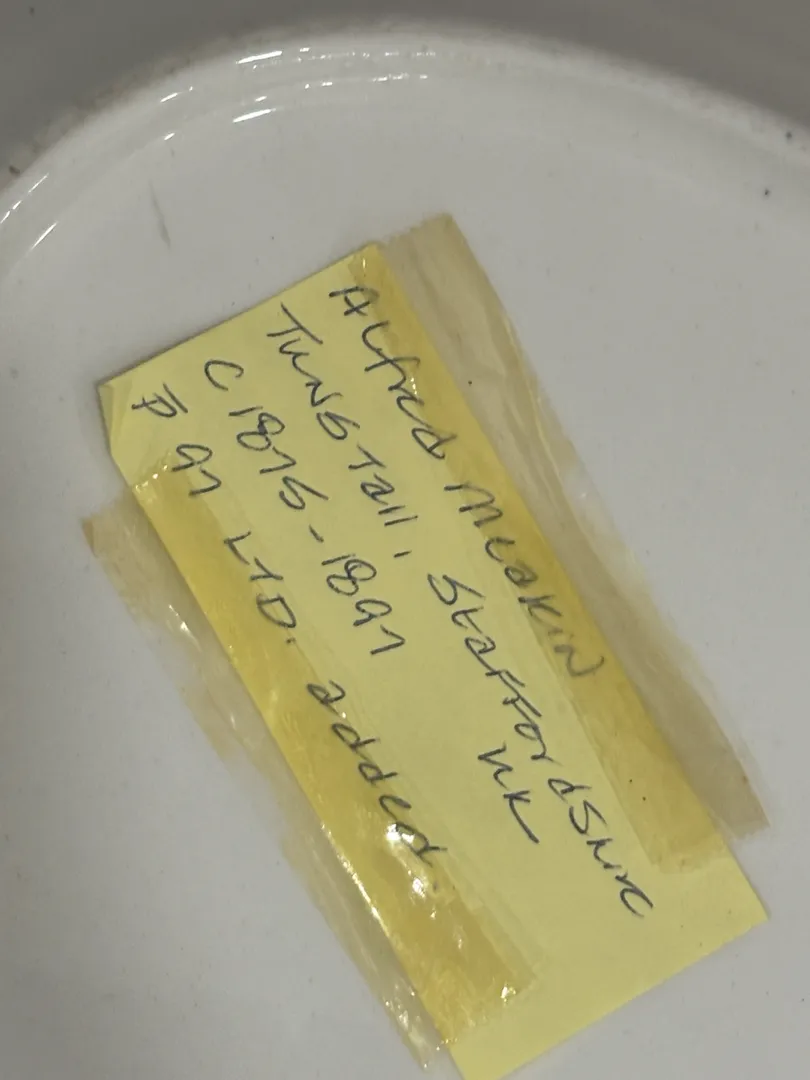 Alfred Meakin
Tunstall, Staffordshire
UK
C 1875-1897
P 97 LTD. added.